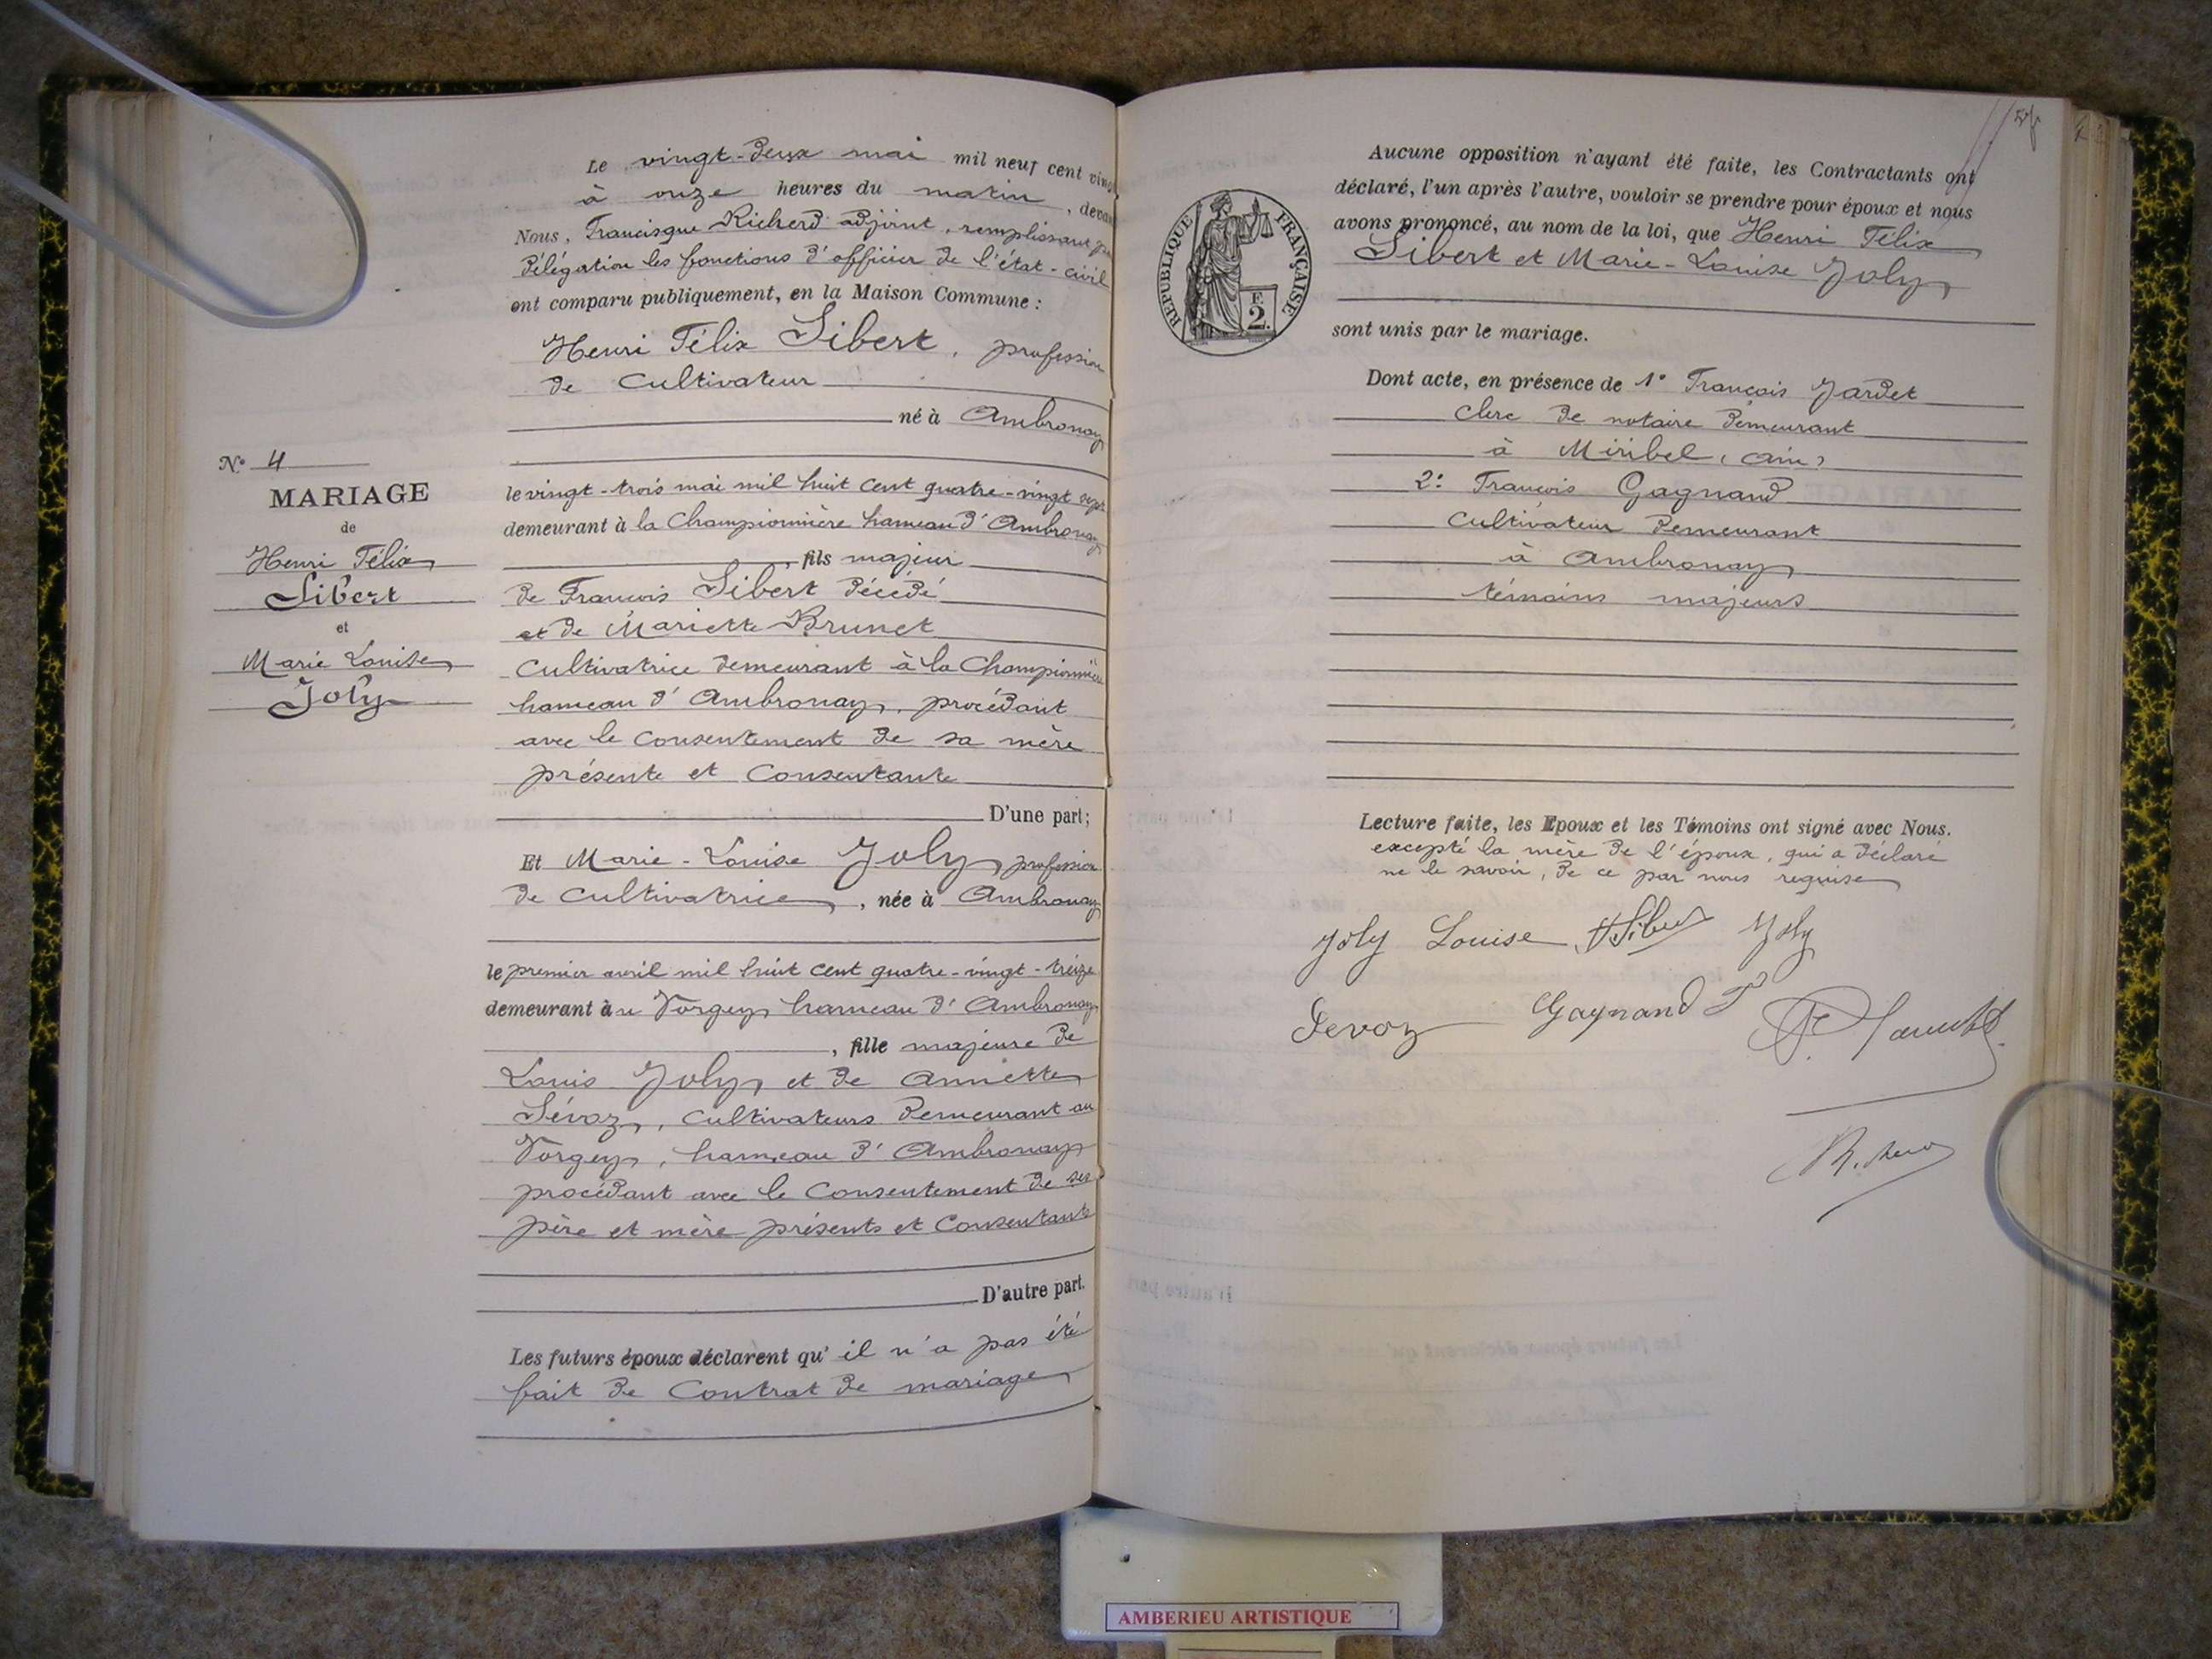 Le vingt-deux mai mil neuf cent
à onze heures du matin,
Nous, Francisque Richerd adjoint, remplissant
délégation les fonctions d'officier de l'état-civil
ont comparu publiquement, en la Maison Commune :
Henri Félix Sibert, profession
de Cultivateur
né à Ambronay
N° 4
MARIAGE
de
Henri Félix
Sibert
et
Marie Louise
Joly
le vingt-trois mai mil huit cent quatre-vingt sept
demeurant à la Championnière hameau d'Ambronay
, fils majeur
de François Sibert décédé
et de Mariette Brunet
Cultivatrice demeurant à la Championnière
hameau d'Ambronay, procédant
avec le consentement de sa mère
présente et consentante
D'une part;
Et Marie-Louise Joly profession
de Cultivatrice, née à Ambronay
le premier avril mil huit cent quatre-vingt-treize
demeurant au Vorgey hameau d'Ambronay
, fille majeure de
Louis Joly et de Annette
Sévoz, cultivateurs demeurant au
Vorgey, hameau d'Ambronay
procédant avec le consentement de ses
père et mère présents et consentants
D'autre part.
Les futurs époux déclarent qu'il n'a pas été
fait de Contrat de mariage
RÉPUBLIQUE FRANÇAISE
F.
2.
Aucune opposition n'ayant été faite, les Contractants ont
déclaré, l'un après l'autre, vouloir se prendre pour époux et nous
avons prononcé, au nom de la loi, que Henri Félix
Sibert et Marie-Louise Joly
sont unis par le mariage.
Dont acte, en présence de 1° François Jardet
clerc de notaire demeurant
à Miribel (Ain)
2: François Gagnand
Cultivateur demeurant
à Ambronay
témoins majeurs
Lecture faite, les Epoux et les Témoins ont signé avec Nous.
excepté la mère de l'époux, qui a déclaré
ne le savoir, de ce par nous requise
Joly Louise HSibert Joly
Sevoz Gagnand F
AMBERIEU ARTISTIQUE